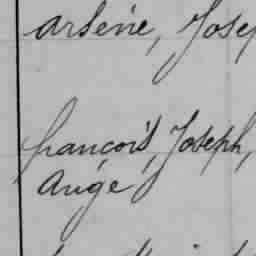 arsène, Josep
françois, Joseph,
Ange